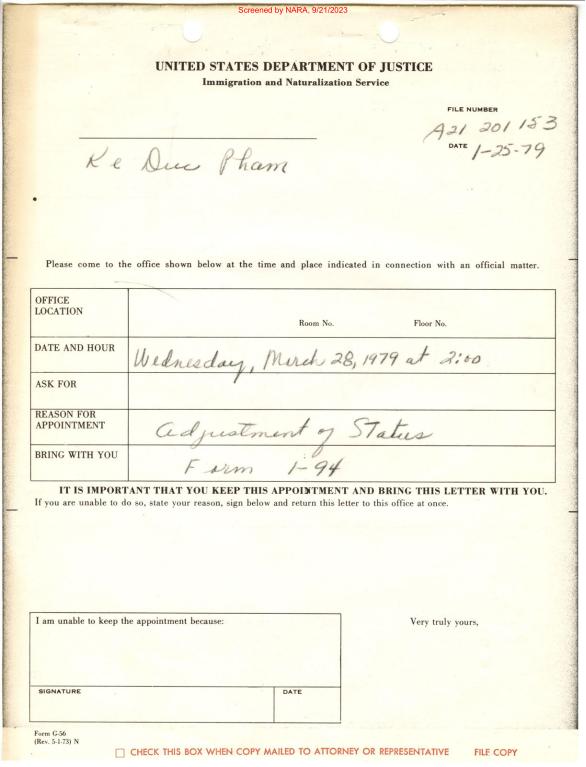 Screened by NARA, 9/21/2023
UNITED STATES DEPARTMENT OF JUSTICE
Immigration and Naturalization Service
FILE NUMBER
A21 201 153
DATE 1-25-79
Ke Duc Pham
Please come to the office shown below at the time and place indicated in connection with an official matter.
OFFICE
LOCATION
Room No. Floor No.
DATE AND HOUR Wednesday, March 28, 1979 at 2:00
ASK FOR
REASON FOR
APPOINTMENT Adjustment of Status
BRING WITH YOU Form I-94
IT IS IMPORTANT THAT YOU KEEP THIS APPOINTMENT AND BRING THIS LETTER WITH YOU.
If you are unable to do so, state your reason, sign below and return this letter to this office at once.
I am unable to keep the appointment because:
Very truly yours,
SIGNATURE DATE
Form G-56
(Rev. 5-1-73) N
CHECK THIS BOX WHEN COPY MAILED TO ATTORNEY OR REPRESENTATIVE FILE COPY